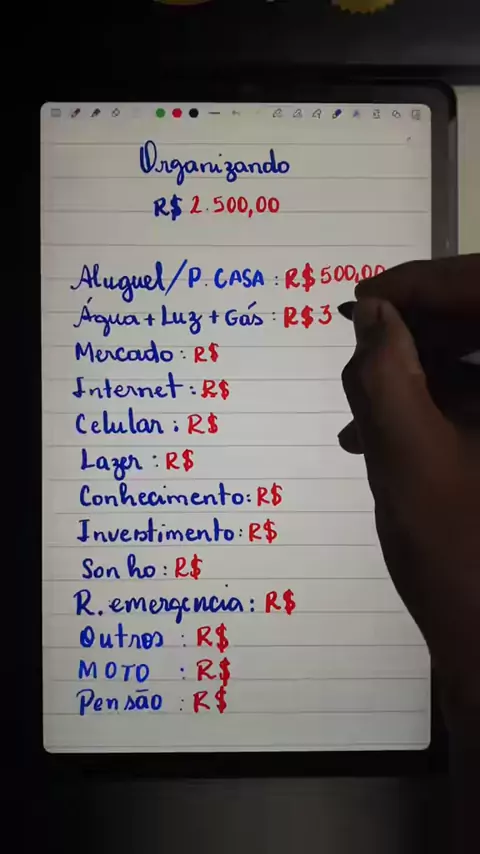 Organizando
R$ 2.500,00
Aluguel/P. CASA : R$ 500,00
Água + Luz + Gás : R$ 3
Mercado : R$
Internet : R$
Celular : R$
Lazer : R$
Conhecimento: R$
Investimento: R$
Sonho : R$
R. emergencia : R$
Outros : R$
MOTO : R$
Pensão : R$